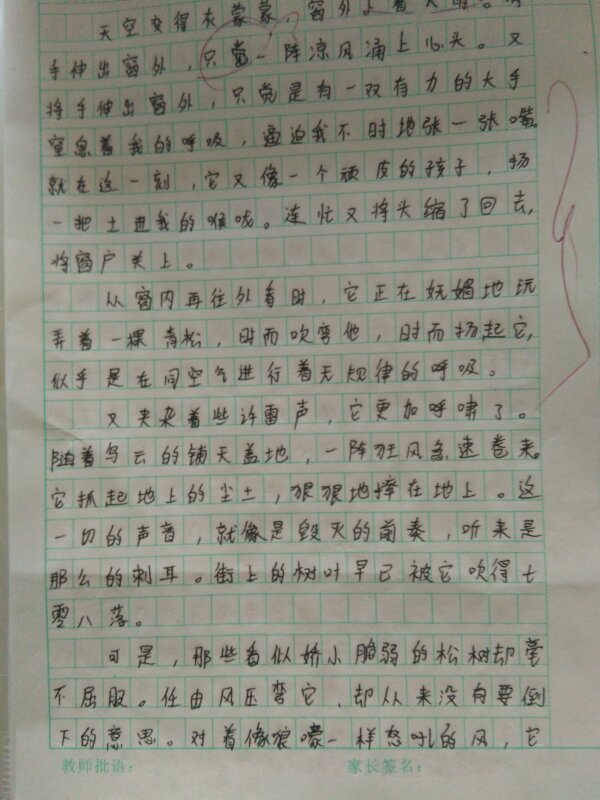 天空变得灰蒙蒙，窗外
手伸出窗外，只觉一阵凉风涌上心头。又
将手伸出窗外，只觉是有一双有力的大手
窒息着我的呼吸，逼迫我不时地张一张嘴。
就在这一刻，它又像一个顽皮的孩子，扬
一把土进我的喉咙。连忙又将头缩了回去，
将窗户关上。
从窗内再往外看时，它正在妩媚地玩
弄着一棵青松，时而吹弯他，时而扬起它，
似乎是在同空气进行着无规律的呼吸。
又夹杂着些许雷声，它更加呼啸了。
随着乌云的铺天盖地，一阵狂风急速卷来。
它抓起地上的尘土，狠狠地摔在地上。这
一切的声音，就像是毁灭的前奏，听来是
那么的刺耳。街上的树叶早已被它吹得七
零八落。
可是，那些看似娇小脆弱的松树却毫
不屈服。任由风压弯它，却从来没有要倒
下的意思。对着像狼嚎一样怒吼的风，它
教师批语：
家长签名：